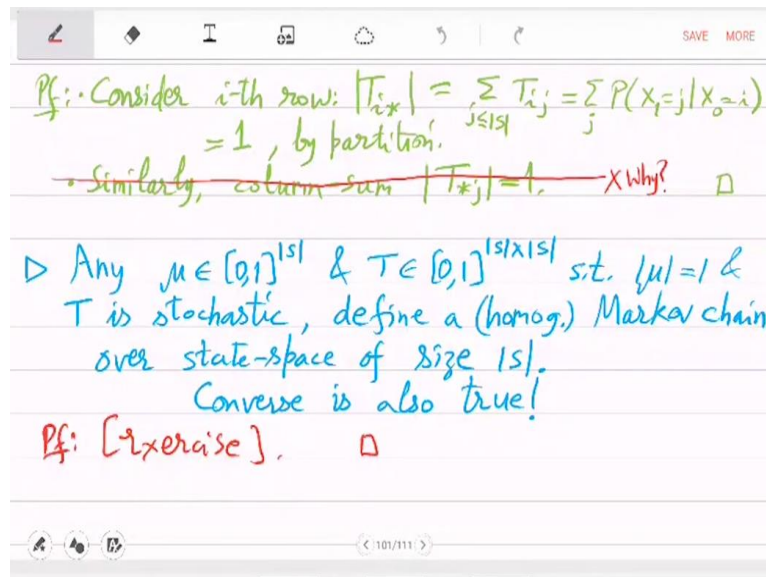 T SAVE MORE
Pf: • Consider i-th row: |T_{i*}| = Σ_{j≤|S|} T_{ij} = Σ_j P(X_1=j|X_0=i)
= 1, by partition.
• Similarly, column sum |T_{*j}|=1. X Why? □
▷ Any μ ∈ [0,1]^{|S|} & T ∈ [0,1]^{|S|×|S|} s.t. |μ|=1 &
T is stochastic, define a (homog.) Markov chain
over state-space of size |S|.
Converse is also true!
Pf: [Exercise]. □
< 101/111 >